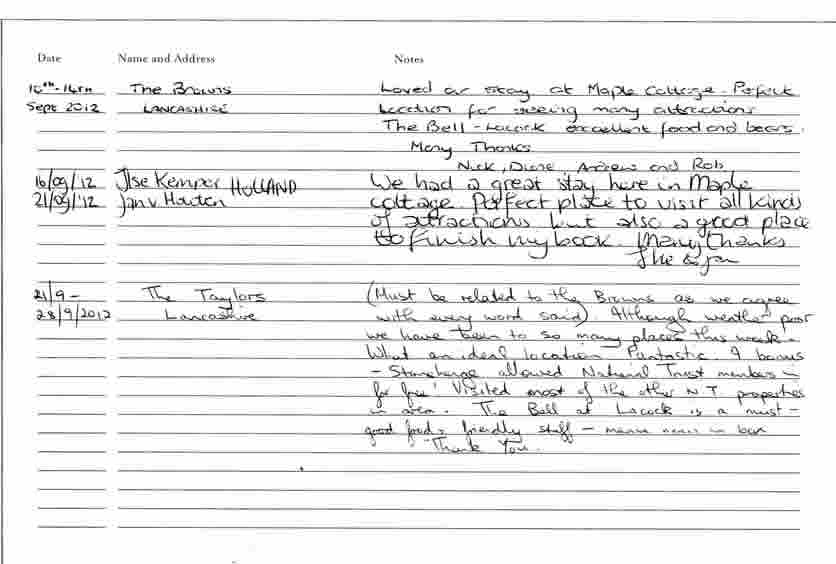 Date Name and Address Notes
10th-14th The Browns Loved our stay at Maple Cottage. Perfect
Sept 2012 LANCASHIRE Location for seeing many attractions
The Bell - Lacock excellent food and beers.
Many Thanks
Nick, Diane, Andrew and Rob
16/09/12 Ilse Kemper HOLLAND We had a great stay here in Maple
21/09/'12 Jan v Houten cottage. Perfect place to visit all kinds
of attractions but also a good place
to finish my book. Many thanks
Ilse & Jan
21/9- The Taylors (Must be related to the Browns as we agree
28/9/2012 Lancashire with every word said). Although weather poor
we have been to so many places this week.
What an ideal location. Fantastic. A bonus
- Stonehenge allowed National Trust members in
for free! Visited most of the other N.T. properties
in area. The Bell at Lacock is a must -
good food, friendly staff - in bar
Thank You.